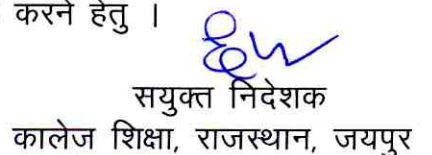 करने हेतु ।
सयुक्त निदेशक
कालेज शिक्षा, राजस्थान, जयपुर